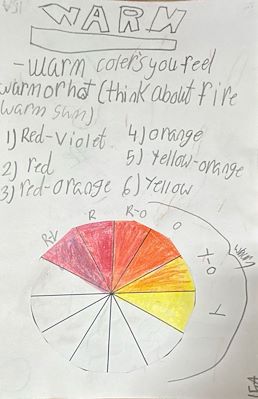 WARM
-Warm coler's you feel
warm or hot (think about fire
warm sun)
1) Red-Violet
4) orange
2) red
5) Yellow-orange
3) red-orange
6) Yellow
R-V
R
R-O
O
Y-O
Y
warm